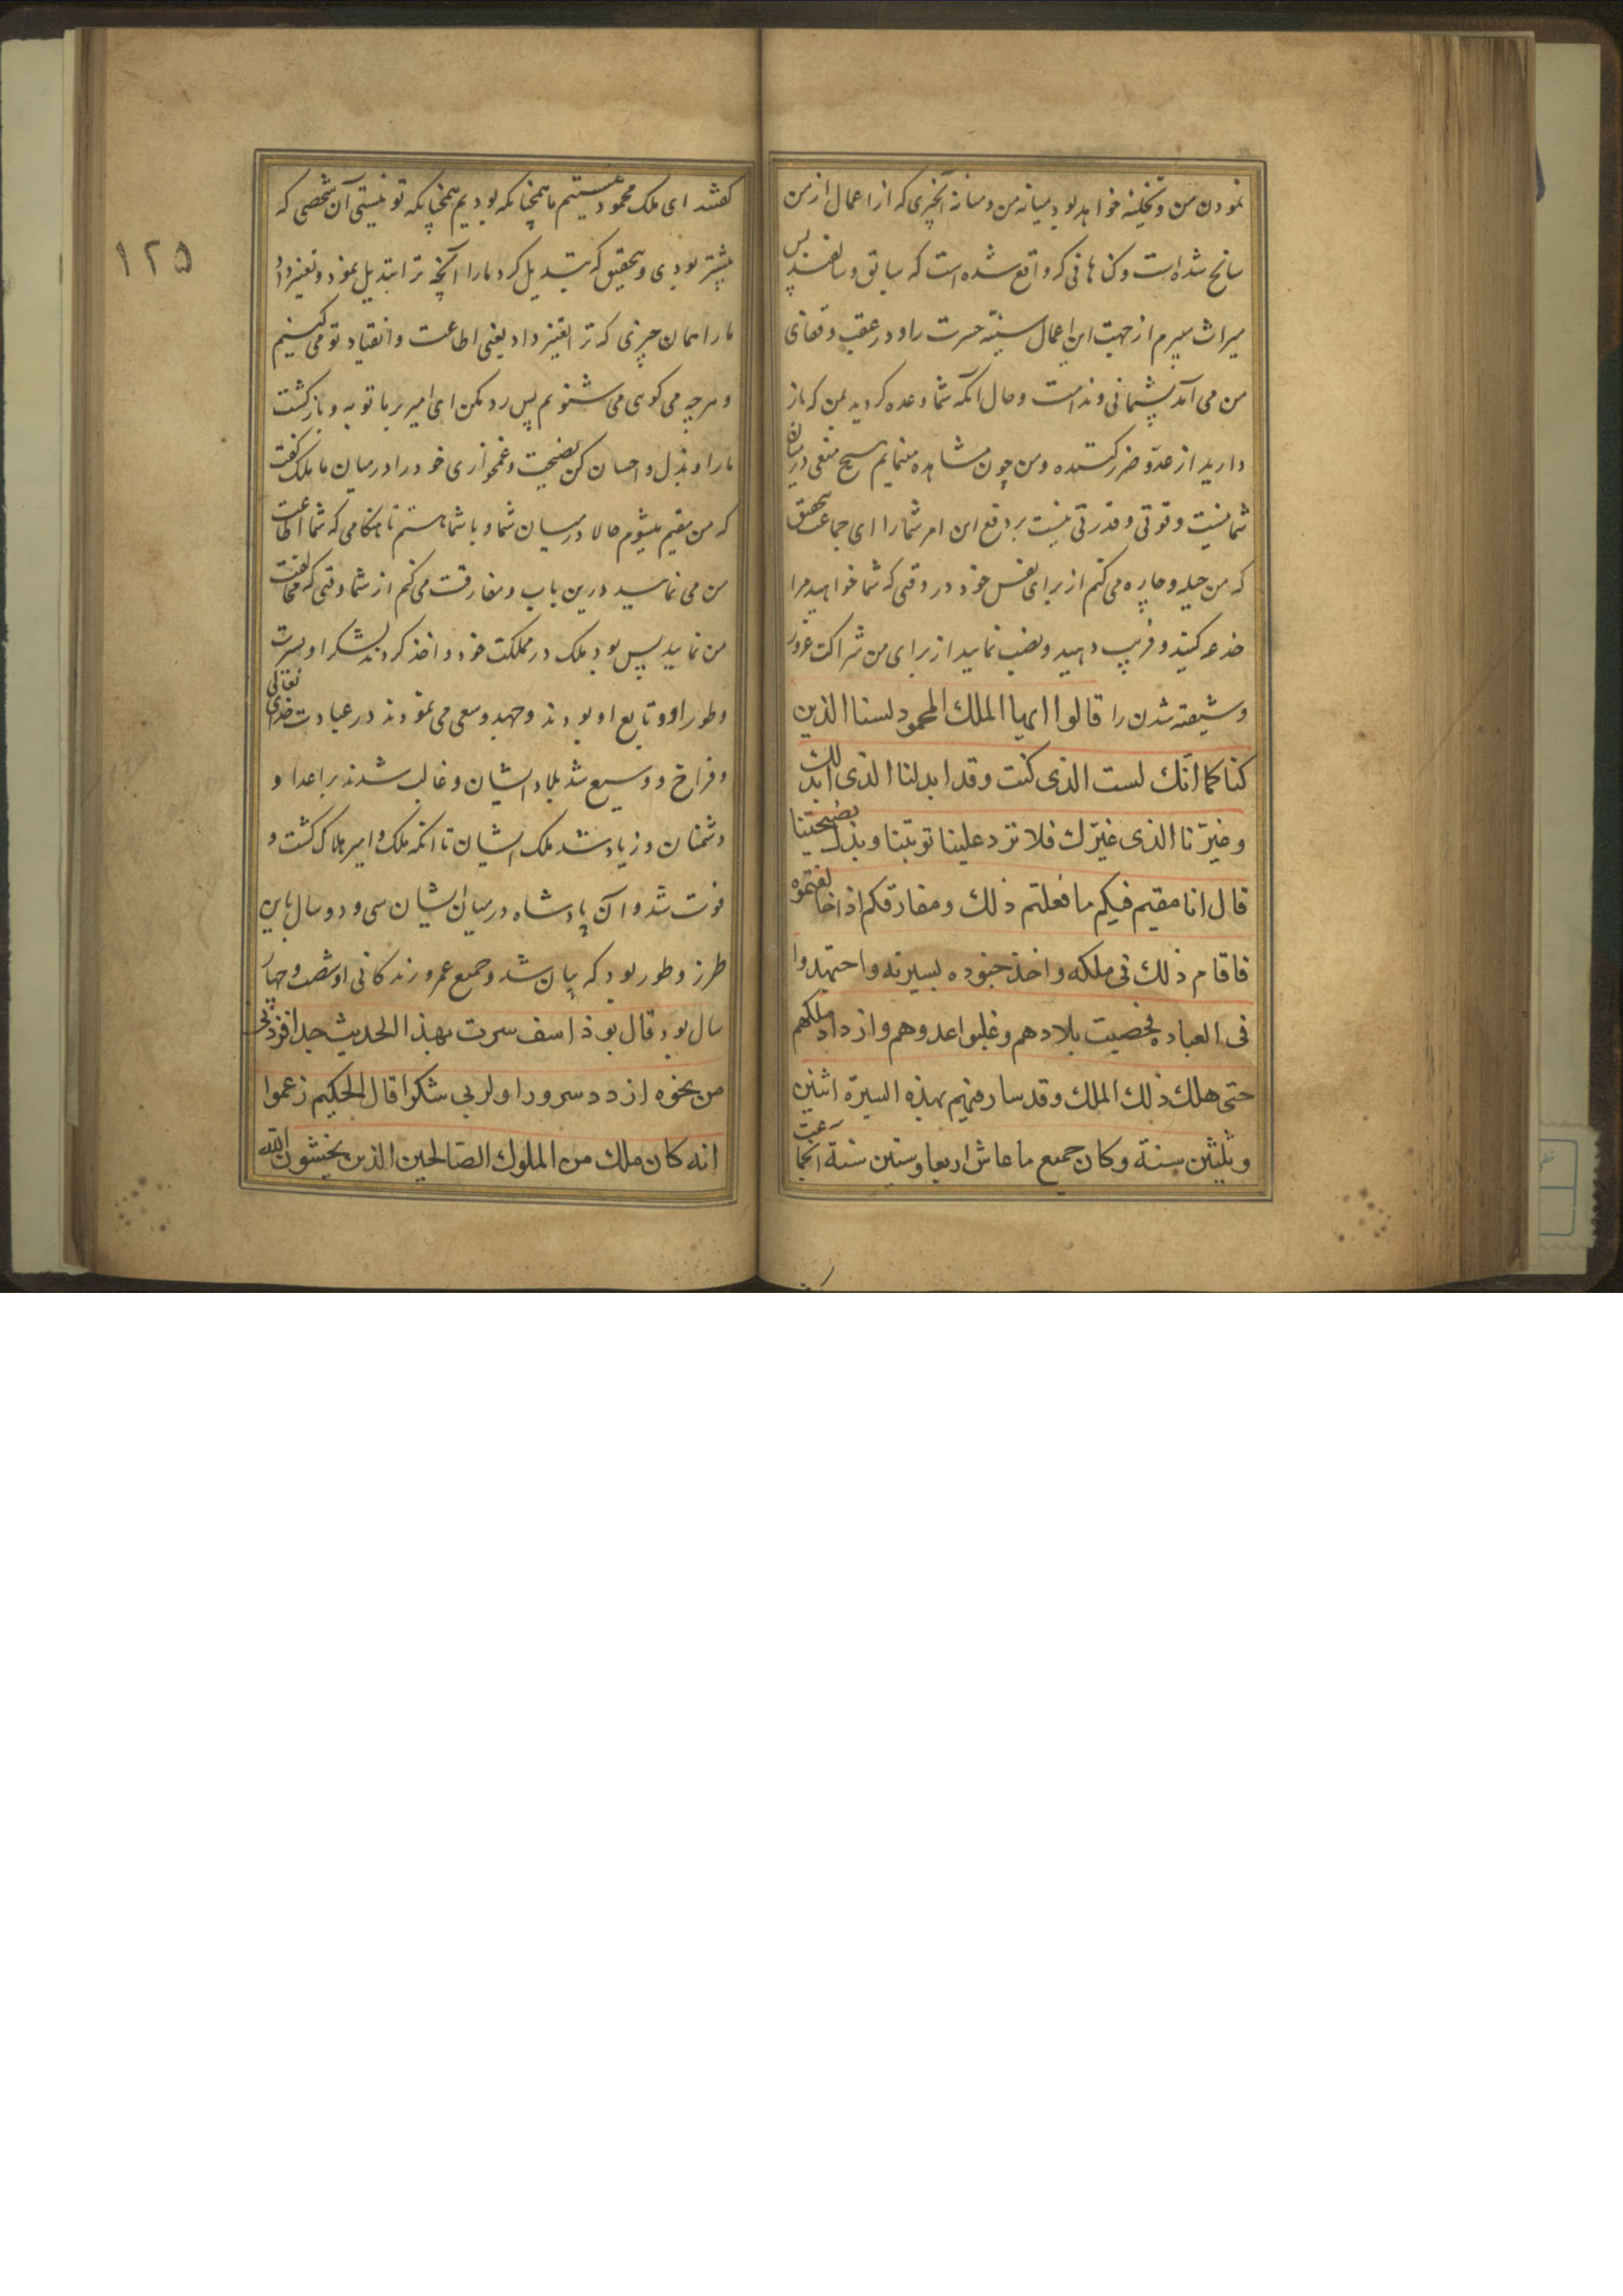 نمودن من و تخلیه خواهد بود میانه من و میانه آنچیزی که از اعمال از من
سانح شده است و کناهانی که واقع شده است که سابق و سالفند پس
میراث میبرم از جهت این اعمال سیئه حسرت را و در عقب و قفای
من می آید پشیمانی و ندامت و حال آنکه شما وعده کردید بمن که باز
دارید از عدو ضرر کننده و من چون مشاهده مینمایم هیچ منعی در میان
شما نیست و قوتی و قدرتی نیست بر دفع این امر شما را ای جماعت بتحقیق
که من حیله و چاره می کنم از برای نفس خود در وقتی که شما خواهید مرا
خدعه کنید و فریب دهید و نصب نمایید از برای من شراکت غرور
و شیفته شدن را قالوا ایها الملک المحمود لسنا الذین
کنا کما انّک لست الذی کنت وقد ابدلنا الذی ابدلک
وغیّرنا الذی غیّرک فلا ترد علینا توبتنا وبذل نصیحتنا
قال انا مقیم فیکم ما فعلتم ذلک ومفارقکم اذا خالفتموه
فاقام ذلک فی ملکه واخذ جنوده بسیرته واجتهدوا
فی العباده فخصبت بلادهم وغلبوا عدوهم وازداد ملکهم
حتی هلک ذلک الملک وقد سار فیهم بهذه السیرة اثنین
وثلثین سنة وکان جمیع ما عاش اربعا وستین سنة انجماعت
١٢٥
کفتند ای ملک محمود نیستیم ما همچنانکه بودیم همچنانکه تو نیستی آن شخصی که
پیشتر بودی و بتحقیق که تبدیل کرد ما را آنچه ترا تبدیل نمود و تغییر داد
ما را همان چیزی که ترا تغییر داد یعنی اطاعت و انقیاد تو می کنیم
و هر چه می کوی می شنویم پس رد مکن ای امیر بر ما توبه و بازکشت
ما را و بذل و احسان کن نصیحت و غمخواری خود را در میان ما ملک کفت
که من مقیم میشوم حالا در میان شما و با شما هستم تا هنکامی که شما اطاعت
من می نمایید درین باب و مفارقت می کنم از شما وقتی که مخالفت
من نمایید پس بود ملک در مملکت خود و اخذ کردند لشکر او سیرت
و طور او و تابع او بودند و جهد و سعی می نمودند در عبادت خدای تعالی
و فراخ و وسیع شد بلاد ایشان و غالب شدند بر اعدا و
دشمنان و زیاد شد ملک ایشان تا آنکه ملک و امیر هلاک کشت و
فوت شد و آن پادشاه در میان ایشان سی و دو سال باین
طرز و طور بود که بیان شد و جمیع عمر و زندکانی او شصت و چهار
سال بود قال بوذاسف سرت بهذا الحدیث جدا فزدنی
من نحوه ازدد سرورا ولربی شکرا قال الحکیم زعموا
انه کان ملک من الملوک الصالحین الذین یخشون الله